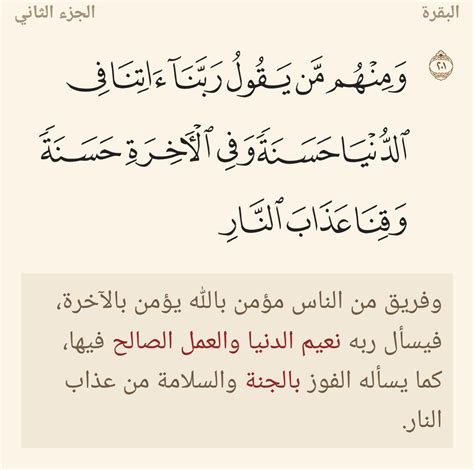 البقرة
الجزء الثاني
وَمِنْهُم مَّن يَقُولُ رَبَّنَآ ءَاتِنَا فِي ٢٠١
ٱلدُّنْيَا حَسَنَةٗ وَفِي ٱلْأٓخِرَةِ حَسَنَةٗ
وَقِنَا عَذَابَ ٱلنَّارِ
وفريق من الناس مؤمن بالله يؤمن بالآخرة،
فيسأل ربه نعيم الدنيا والعمل الصالح فيها،
كما يسأله الفوز بالجنة والسلامة من عذاب
النار.